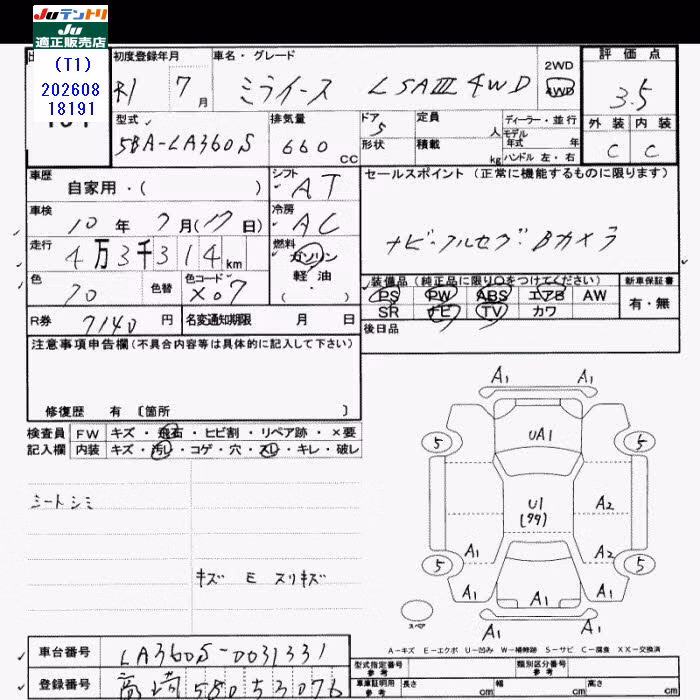 JUテントリ
JU
適正販売店
(T1)
202608
18191
初度登録年月
R1 7月
車名・グレード
ミライース LSAⅢ 4WD
2WD
4WD
評価点
3.5
外装 内装
C C
型式
5BA-LA360S
排気量
660 CC
ドア 5
形状
定員 人
積載 kg
ディーラー・並行
モデル年式 年
ハンドル 左・右
車歴
自家用・( )
シフト AT
セールスポイント(正常に機能するものに限ります)
ナビ・フルセグ・Bカメラ
車検
10年7月(17日)
冷房 AC
走行
4万3千314km
燃料
ガソリン
軽油
・( )
色
色替
色コード
X07
装備品(純正品に限り○をつけてください)
PS PW ABS エアB AW
SR ナビ TV カワ
新車保証書
有・無
R券 7140円
名変通知期限 月 日
後日品
注意事項申告欄(不具合内容等は具体的に記入して下さい)
修復歴 有 〔箇所 〕
検査員記入欄
FW キズ・飛石・ヒビ割・リペア跡・×要
内装 キズ・汚れ・コゲ・穴・スレ・キレ・破レ
シートシミ
キズ E スリキズ
A1 A1
5 UA1 5
U1 A2
A1 A2
5 5
A1 A1 A1
A1 A1
スペア
A-キズ E-エクボ U-凹み W-補修跡 S-サビ C-腐食 XX-交換済
車台番号 LA360S-0031331
登録番号 高崎 580 5 3076
型式指定番号 参考
類別区分番号 参考
車庫証明用 参考
長さ cm 幅 cm 高さ cm